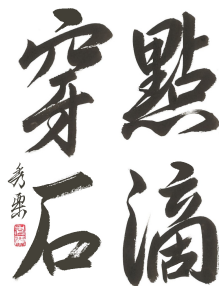 點滴
穿石
秀栗